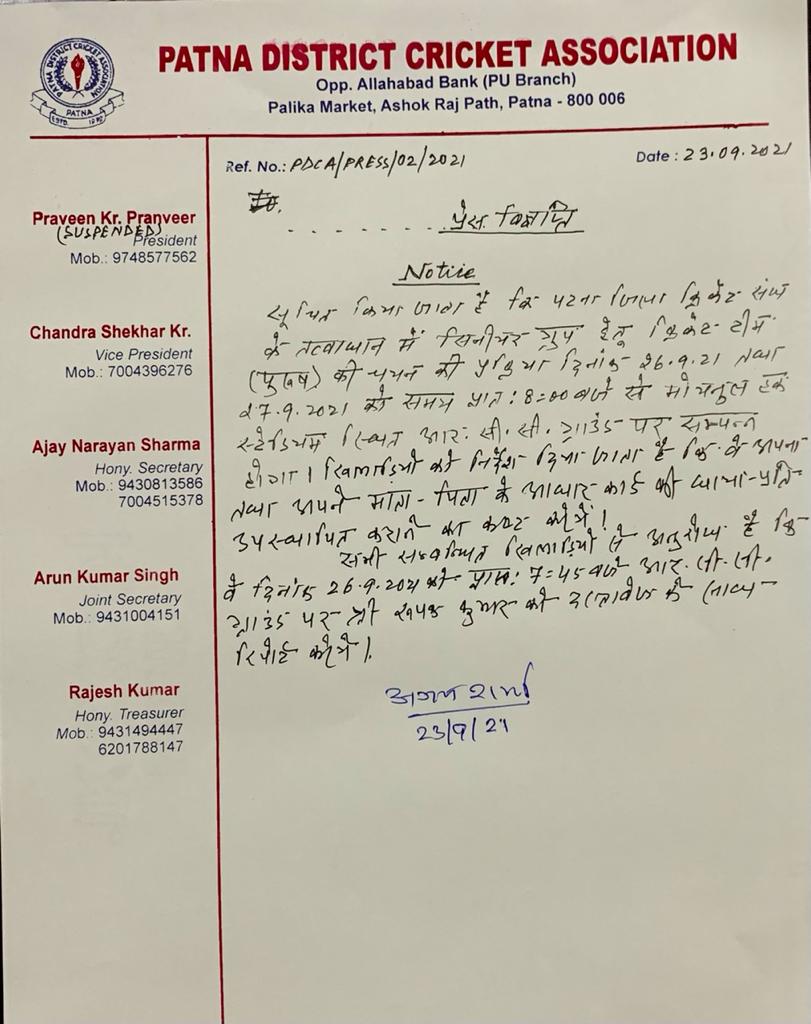 PATNA DISTRICT CRICKET ASSOCIATION
Opp. Allahabad Bank (PU Branch)
Palika Market, Ashok Raj Path, Patna - 800 006
PATNA DISTRICT CRICKET ASSOCIATION
PATNA
ESTD.
Ref. No.: PDCA/PRESS/02/2021
Date : 23.09.2021
Praveen Kr. Pranveer
(SUSPENDED)
President
Mob.: 9748577562
Chandra Shekhar Kr.
Vice President
Mob.: 7004396276
Ajay Narayan Sharma
Hony. Secretary
Mob.: 9430813586
7004515378
Arun Kumar Singh
Joint Secretary
Mob.: 9431004151
Rajesh Kumar
Hony. Treasurer
Mob.: 9431494447
6201788147
. . . . . . . प्रेस विज्ञप्ति
Notice
सूचित किया जाता है कि पटना जिला क्रिकेट संघ
के तत्वाधान में सिनीयर ग्रुप हेतू क्रिकेट टीम
(पुरुष) की चयन की प्रक्रिया दिनांक 26.9.21 तथा
27.9.2021 को समय प्रातः 8=00 बजे से मोयनुल हक
स्टेडियम स्थित आर. सी. सी. ग्राउंड पर सम्पन्न
होगा। खिलाडियो को निर्देश दिया जाता है कि वे अपना
तथा अपने माता-पिता के आधार कार्ड की छाया-प्रति
उपस्थापित कराने का कष्ट करेंगे।
सभी सम्बन्धित खिलाडियों से अनुरोध है कि
वे दिनांक 26.9.2021 को प्रातः 7=45 बजे आर. सी. सी.
ग्राउंड पर श्री कुमार को दस्तावेज के साथ
रिपोर्ट करेंगे।
अजय शर्मा
23/9/21